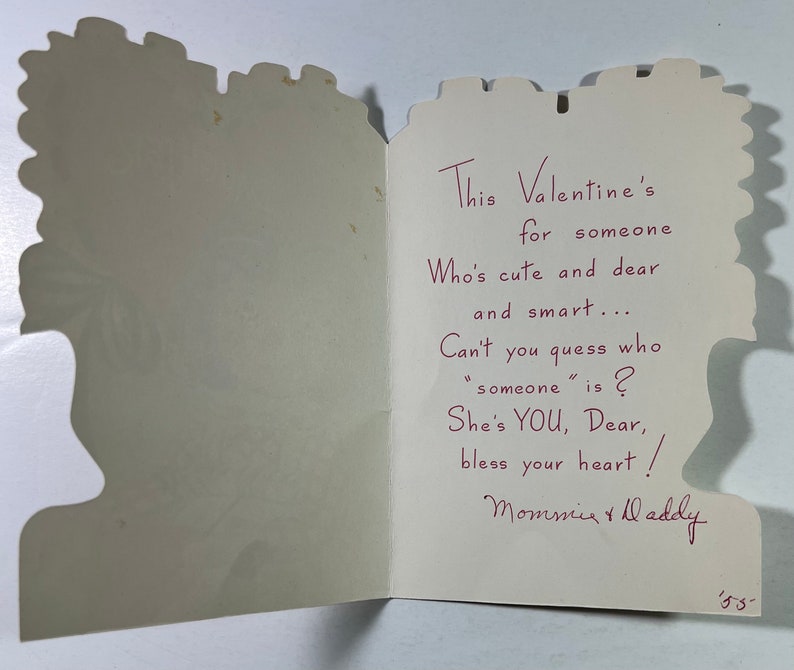 This Valentine's
for someone
Who's cute and dear
and smart...
Can't you guess who
"someone" is?
She's YOU, Dear,
bless your heart!
Mommie & Daddy
'55